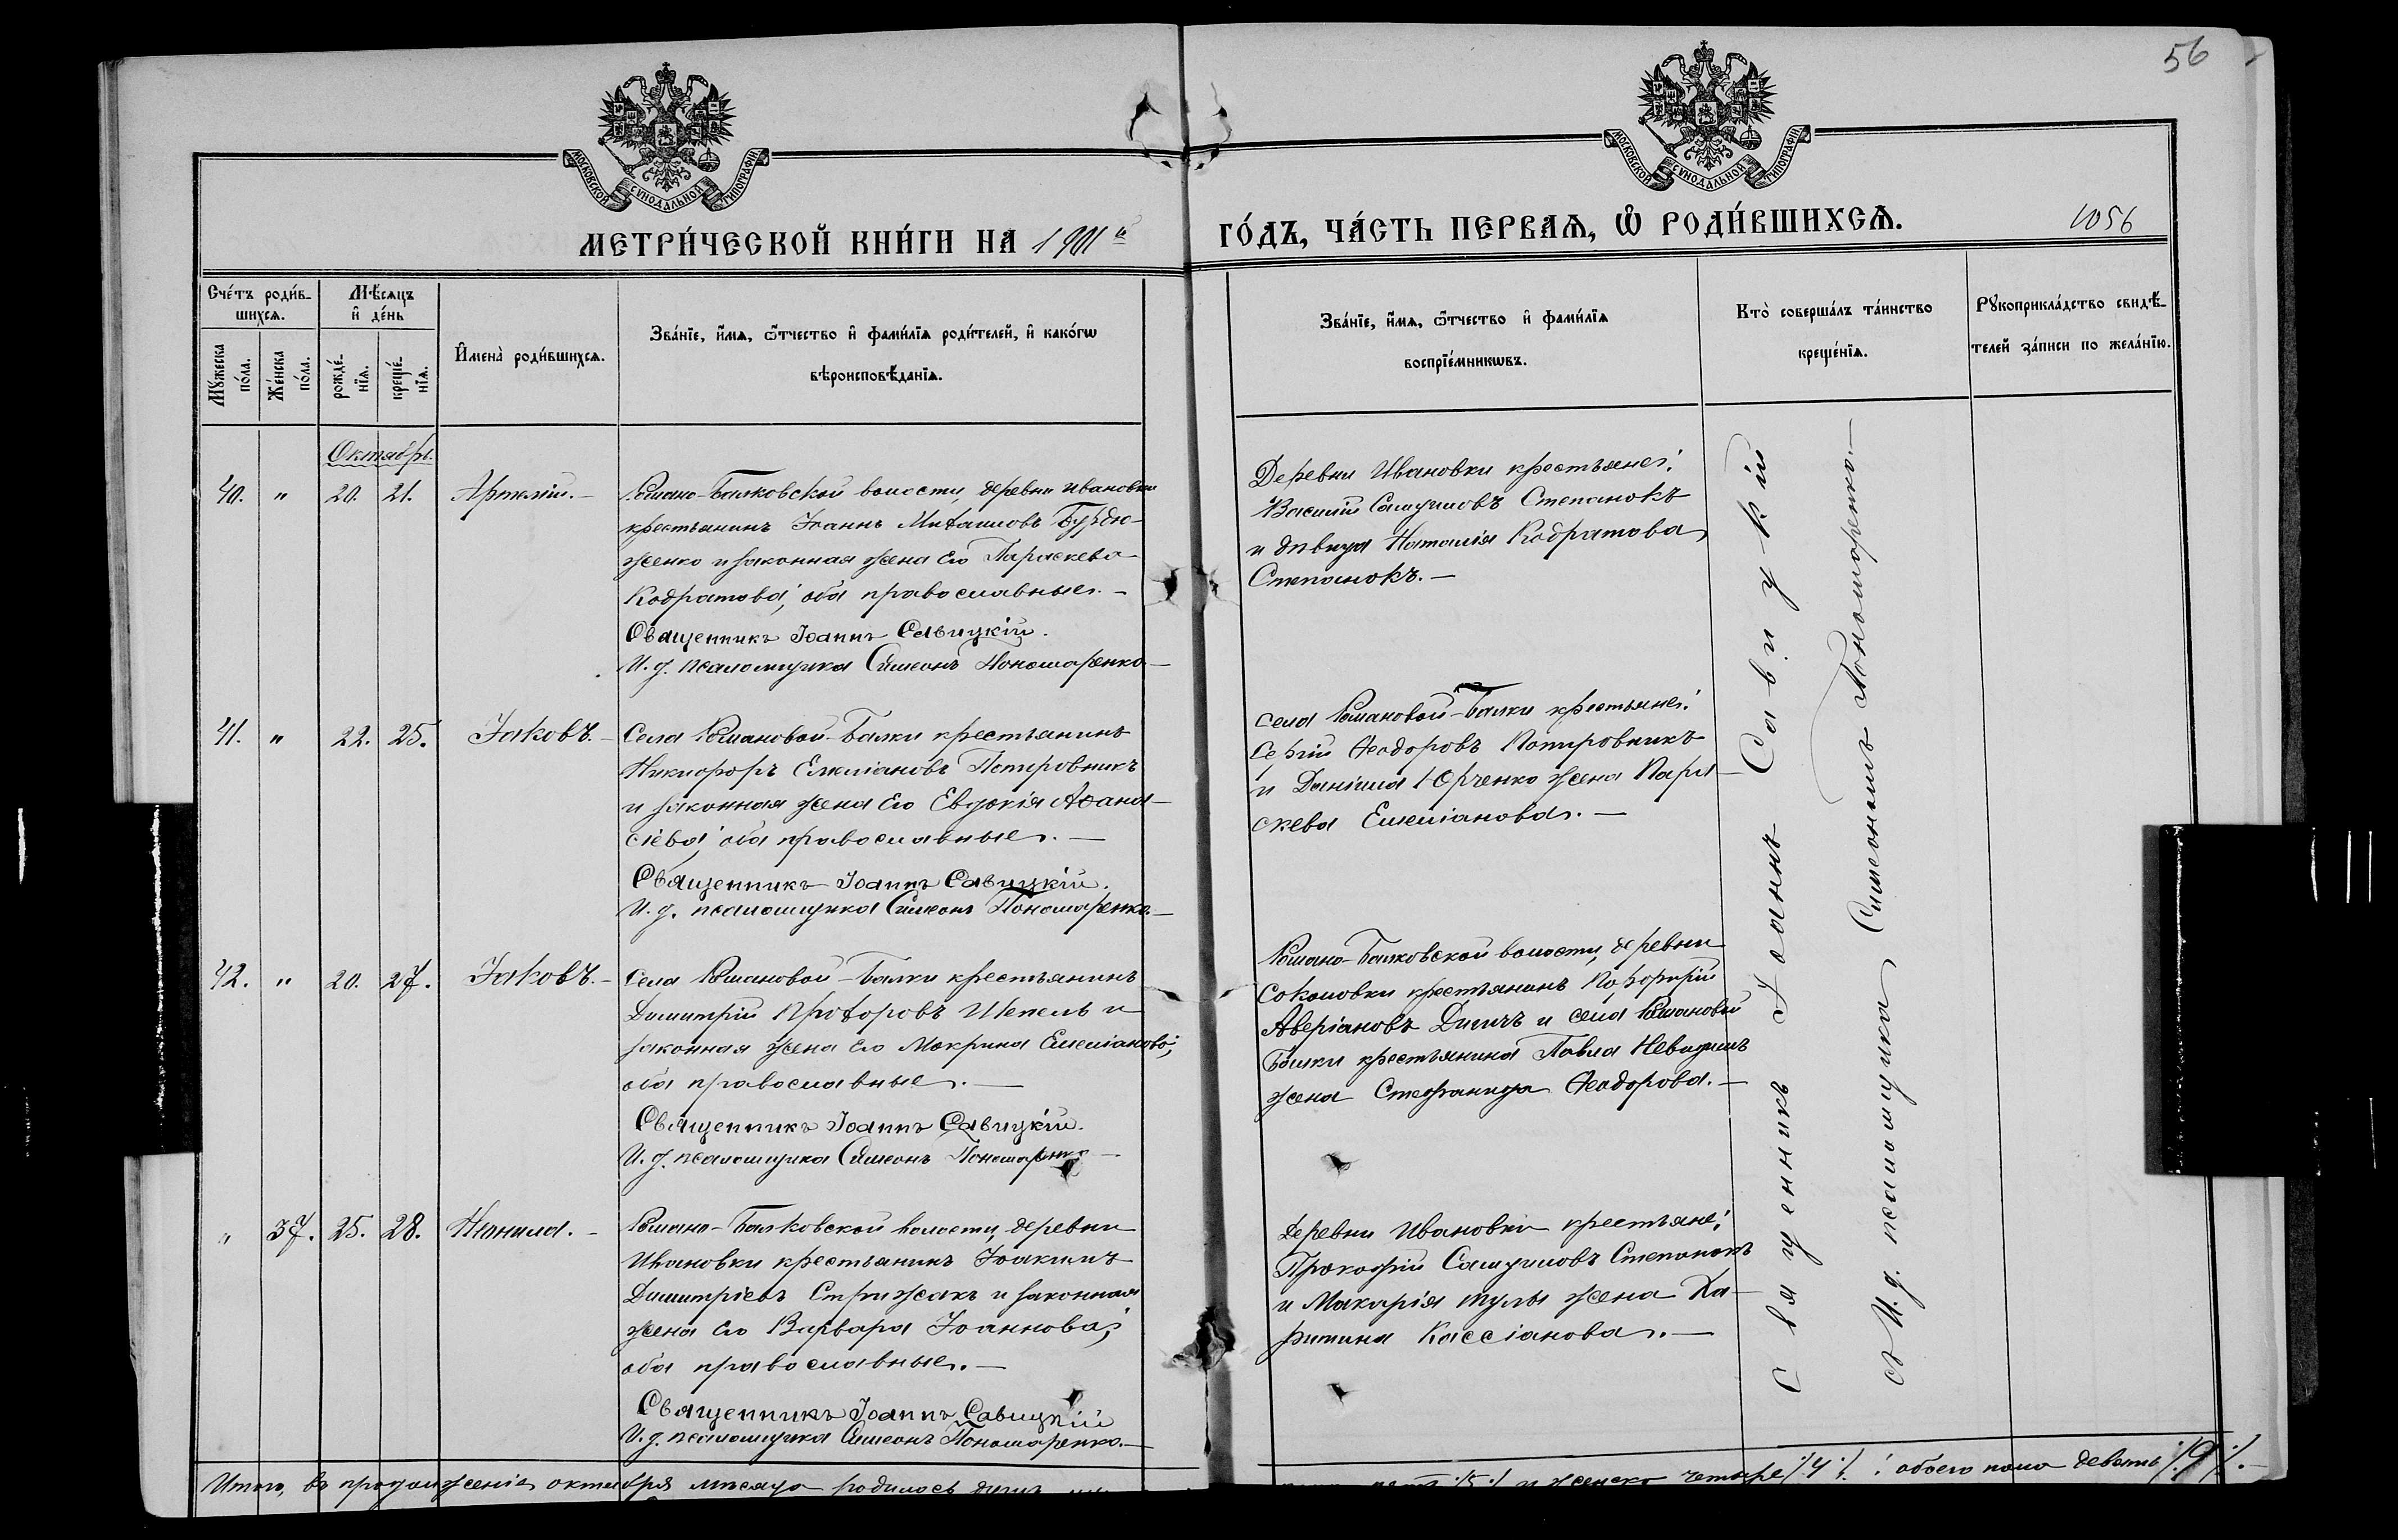 56
МОСКОВСКОЙ СѴНОДАЛЬНОЙ ТИПОГРАФІИ
МОСКОВСКОЙ СѴНОДАЛЬНОЙ ТИПОГРАФІИ
МЕТРИ́ЧЕСКОЙ КНИ́ГИ НА 1901й
ГО́ДЪ, ЧА́СТЬ ПЕРВАѦ, Ѡ҆ РОДИ́ВШИХСѦ.
1056
Сче́тъ роди́в-
шихсѧ.
Мꙋ́жеска по́ла.
Же́нска по́ла.
Мѣ́сѧцъ
и҆ де́нь
рожде́-
нїѧ.
креще́-
нїѧ.
И҆мена̀ роди́вшихсѧ.
Зва́нїе, и҆́мѧ, ѻ҆́тчество и҆ фами́лїѧ роди́телей, и҆ како́гѡ
вѣроисповѣ́данїѧ.
Зва́нїе, и҆́мѧ, ѻ҆́тчество и҆ фами́лїѧ
воспрїе́мникѡвъ.
Кто̀ соверша́лъ та́инство
креще́нїѧ.
Рꙋкоприкла́дство свидѣ́-
телей за́писи по жела́нїю.
Октябрь.
40. " 20. 21. Артемій.—
Романо-Балковской волости, деревни Ивановки
крестьянинъ Іоаннъ Миѳаиловъ Бурдю-
женко и законная жена его Параскева
Кодратова; оба православные.—
Священникъ Іоаннъ Савицкій.
И. д. псаломщика Симеонъ Пономаренко—
Деревни Ивановки крестьяне:
Василій Самуиловъ Степанокъ
и дѣвица Наталія Кодратова
Степанокъ.—
41. " 22. 25. Іаковъ.—
Села Романовой-Балки крестьянинъ
Никифоръ Емиліановъ Потировникъ
и законная жена его Евдокія Аѳана-
сіева; оба православные.—
Священникъ Іоаннъ Савицкій.
И. д. псаломщика Симеонъ Пономаренко—
села Романовой-Балки крестьяне:
Сергій Ѳеодоровъ Потировникъ
и Даніила Юрченко жена Пара-
скева Емиліанова.—
42. " 20. 27. Іаковъ.—
села Романовой-Балки крестьянинъ
Димитрій Проѳоровъ Шепель и
законная жена его Макрина Емиліанова;
оба православные.—
Священникъ Іоаннъ Савицкій.
И. д. псаломщика Симеонъ Пономаренко—
Романо-Балковской волости, деревни
Соколовки крестьянинъ Порфирій
Аверіановъ и села Романовой
Балки крестьянина Павла
жена Стефанида Ѳеодорова.—
" 37. 25. 28. Неонила.—
Романо-Балковской волости, деревни
Ивановки крестьянинъ Іоакимъ
Димитріевъ Стрижакъ и законная
жена его Варвара Іоаннова;
оба православные.—
Священникъ Іоаннъ Савицкій
И. д. псаломщика Симеонъ Пономаренко.—
Деревни Ивановки крестьяне:
Прокофій Самуиловъ Степанокъ
и Макарія Тулы жена Ха-
ритина Кассіанова.—
Священникъ Іоаннъ Савицкій
съ И. д. псаломщика Симеономъ Пономаренко.—
Итого, въ продолженіе октября мѣсяца родилось
5 и женска четыре /4/. обоего пола девять /9/.—